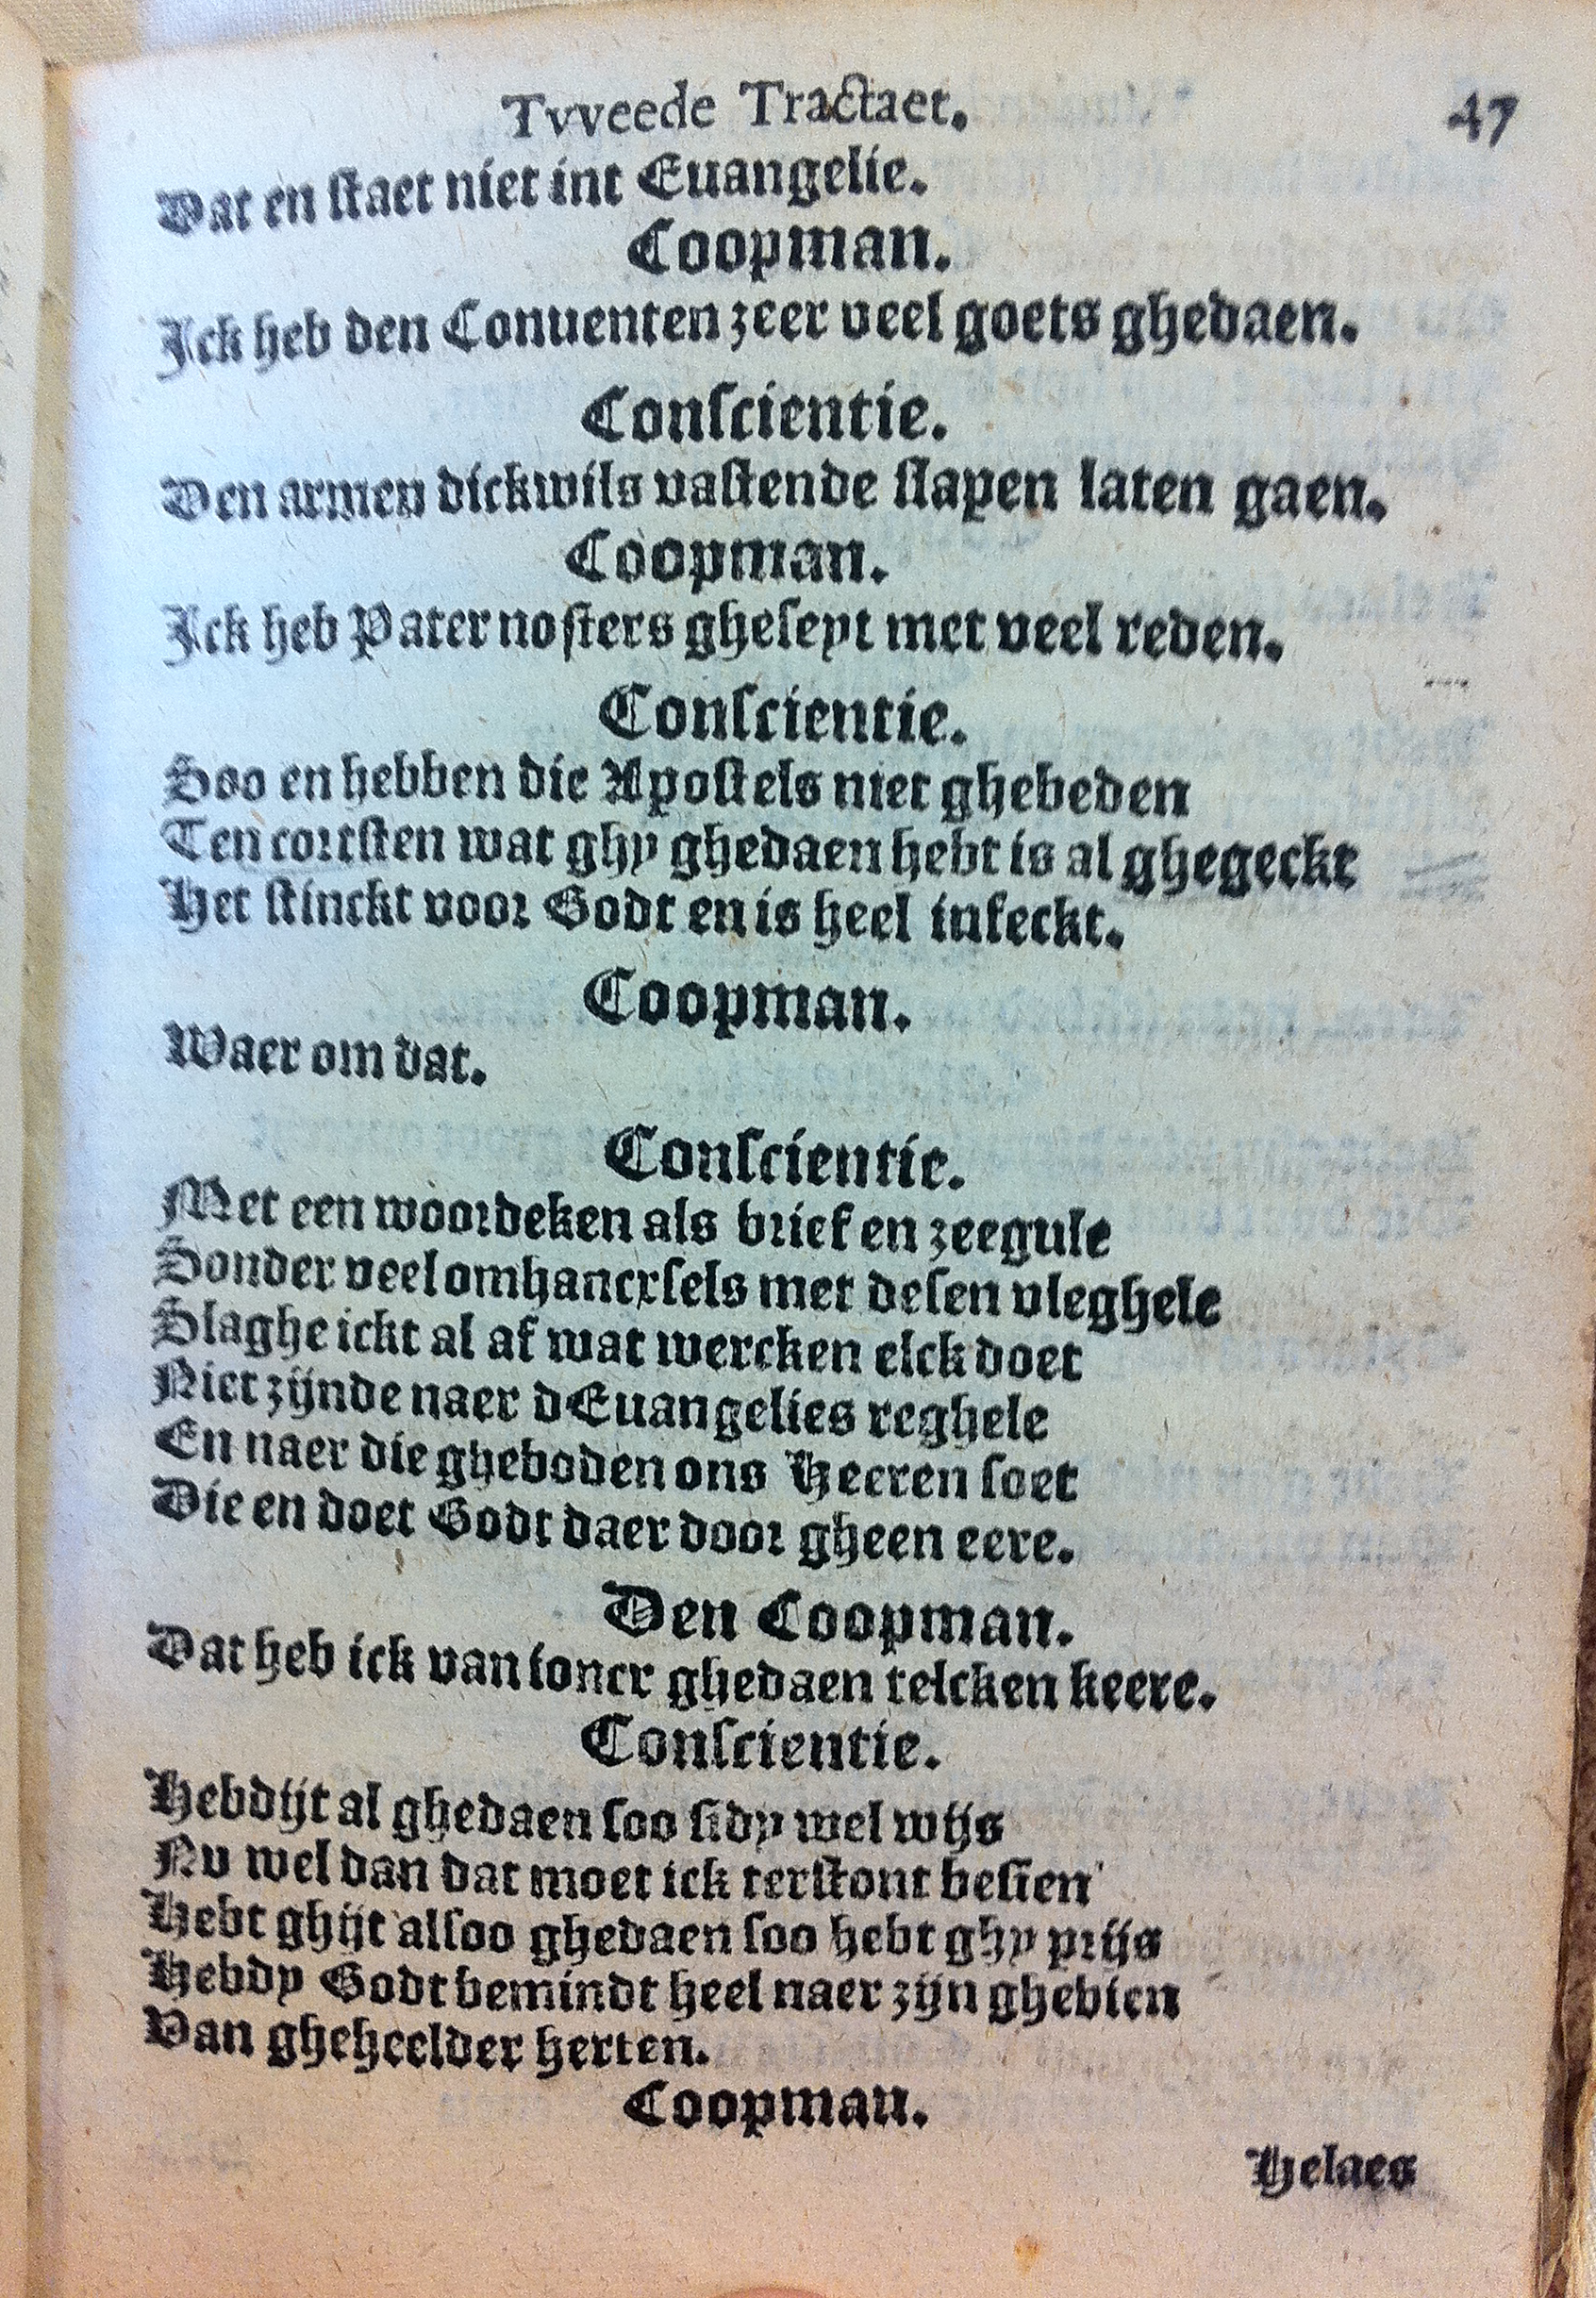 Tvveede Tractaet. 47
Dat en staet niet int Euangelie.
Coopman.
Ick heb den Conuenten zeer veel goets ghedaen.
Conscientie.
Den armen dickwils vastende slapen laten gaen.
Coopman.
Ick heb Pater nosters gheseyt met veel reden.
Conscientie.
Soo en hebben die Apostels niet ghebeden
Ten cortsten wat ghy ghedaen hebt is al ghegeckt
Het stinckt voor Godt en is heel infeckt.
Coopman.
Waer om dat.
Conscientie.
Met een woordeken als brief en zeegule
Sonder veel omhancxsels met desen vleghele
Slaghe ickt al af wat wercken elck doet
Niet zijnde naer dEuangelies reghele
En naer die gheboden ons Heeren soet
Die en doet Godt daer door gheen eere.
Den Coopman.
Dat heb ick van ioncx ghedaen telcken keere.
Conscientie.
Hebdijt al ghedaen soo sidy wel wijs
Nv wel dan dat moet ick terstont besien
Hebt ghijt alsoo ghedaen soo hebt ghy prijs
Hebdy Godt bemindt heel naer zijn ghebien
Van gheheelder herten.
Coopman.
Helaes